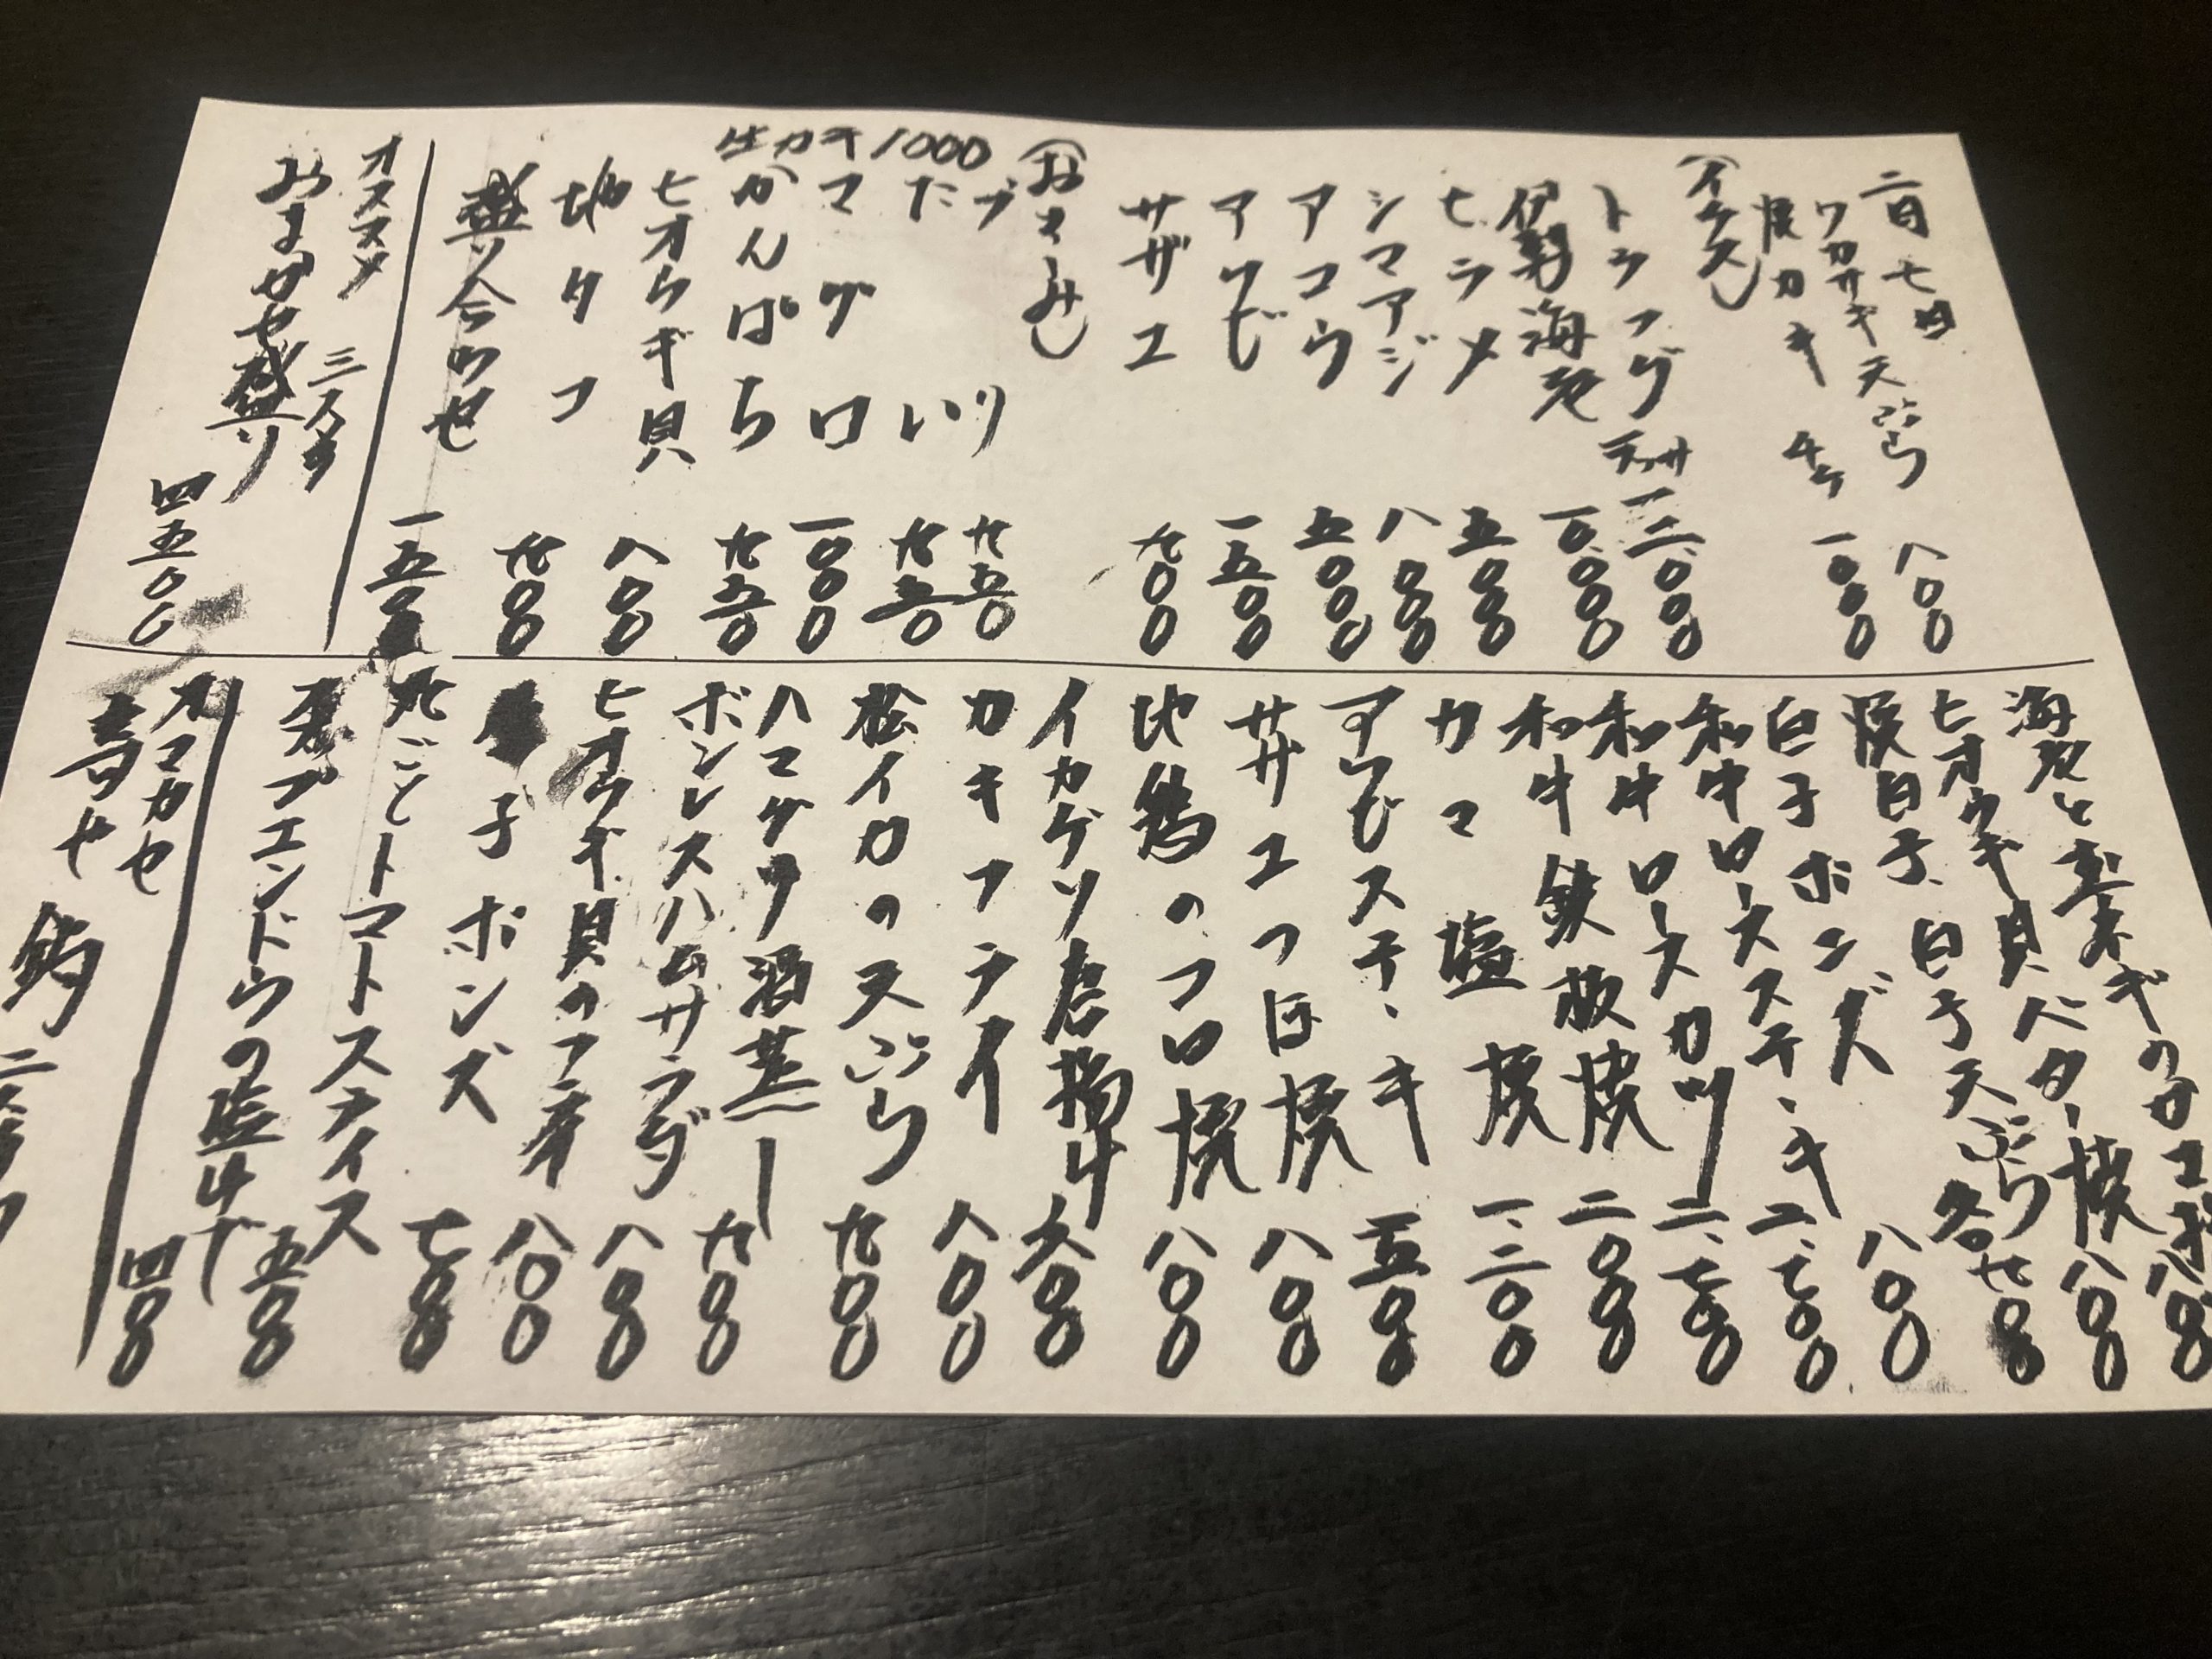 二月七日
ワカサギ天ぷら 八〇〇
焼カキ 一〇〇〇
(イケス)
トラフグ テッサ 一三、〇〇〇
伊勢海老 一〇、〇〇〇
ヒラメ 五〇〇〇
シマアジ 八〇〇〇
アコウ 五〇〇〇
アワビ 一五〇〇
サザエ 九〇〇
(おさしみ)
ブリ 九五〇
たい 九五〇
マグロ 一〇〇〇
生カキ 1000
かんぱち 九五〇
ヒオウギ貝 八〇〇
地タコ 九〇〇
盛り合わせ 一五〇〇
オススメ
三人タ
おまかせ盛り 四五〇〇
海老と玉ネギの
ヒオウギ貝バター焼 八〇〇
焼白子、白子天ぷら 各九〇〇
白子ポンズ 八〇〇
和牛ロースステーキ 二、七〇〇
和牛ロースカツ 二、七〇〇
和牛鉄板焼 二〇〇〇
カマ塩焼 一、二〇〇
アワビステーキ 一五〇〇
サザエつぼ焼 八〇〇
地鶏のコロ焼 八〇〇
イカゲソ唐揚げ 六〇〇
カキフライ 八〇〇
松イカの天ぷら 九〇〇
ハマグリ酒蒸し 九〇〇
ボンレスハムサラダ 八〇〇
ヒオウギ貝の 八〇〇
子ポンズ 七〇〇
丸ごとトマトスライス 五〇〇
エンドウの塩ゆで 四〇〇
オマカセ
寄せ鍋